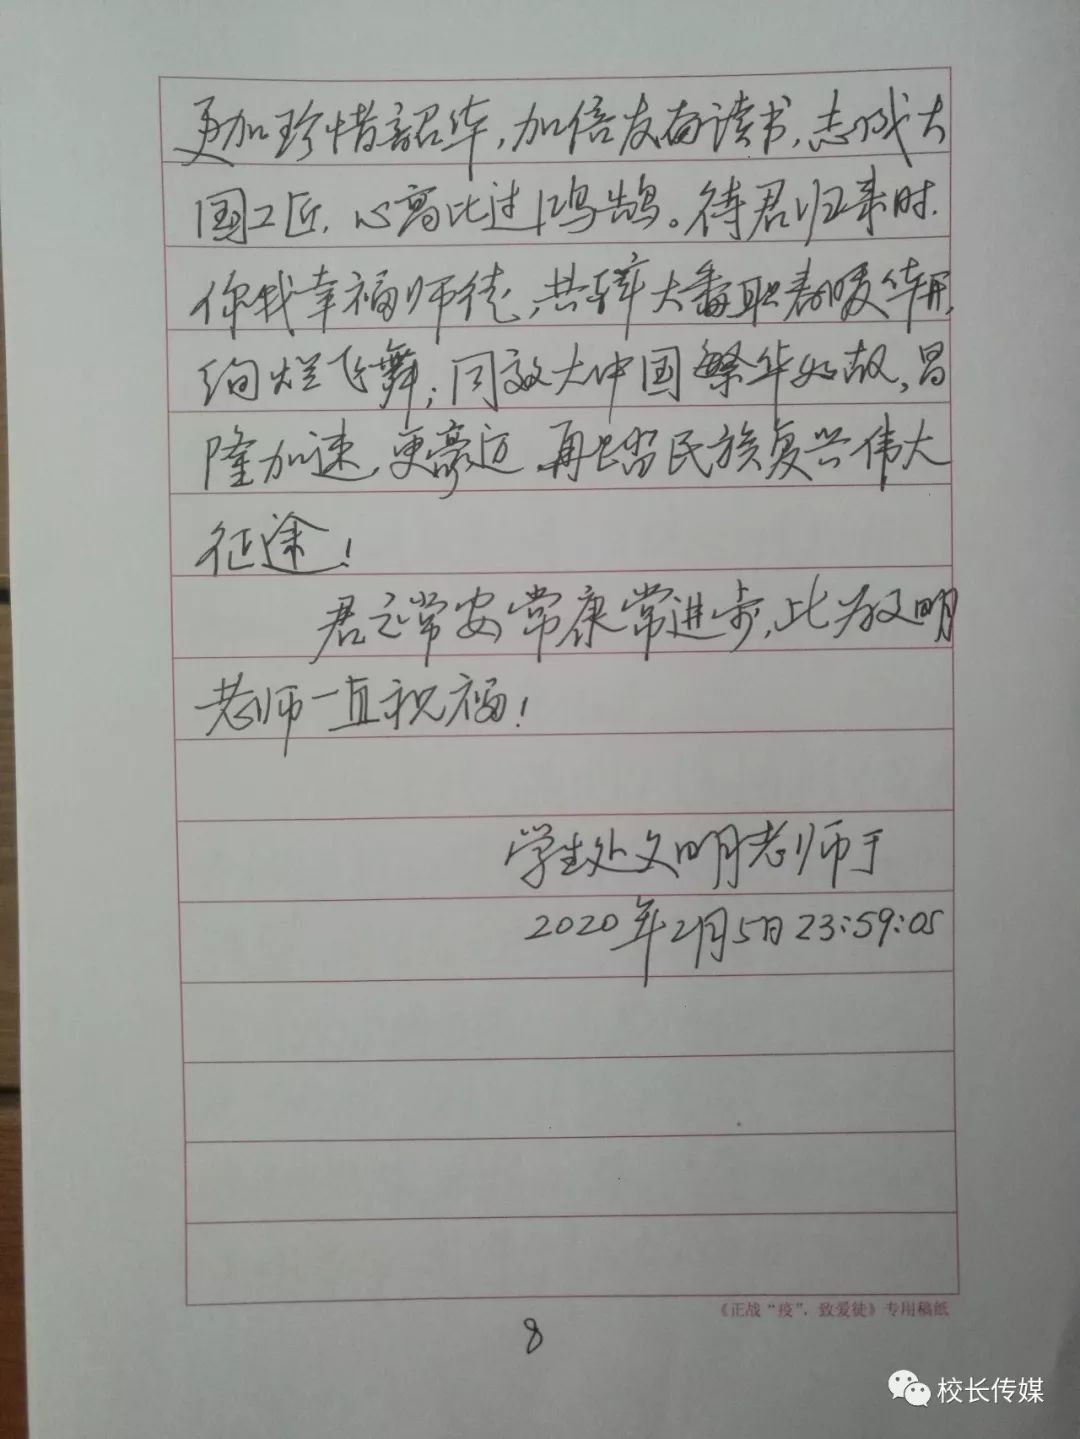 更加珍惜韶华，加倍发奋读书，志成大
国工匠，心高比过鸿鹄。待君归来时，
你我幸福师徒，共辞大番职春暖华开，
绚烂飞舞；同效大中国繁华如故，昌
隆加速，更豪迈，再踏民族复兴伟大
征途！
君之常安常康常进步，此为文明
老师一直祝福！
学生处文明老师于
2020年2月5日23:59:05
《正战“疫”，致爱徒》专用稿纸
8
校长传媒